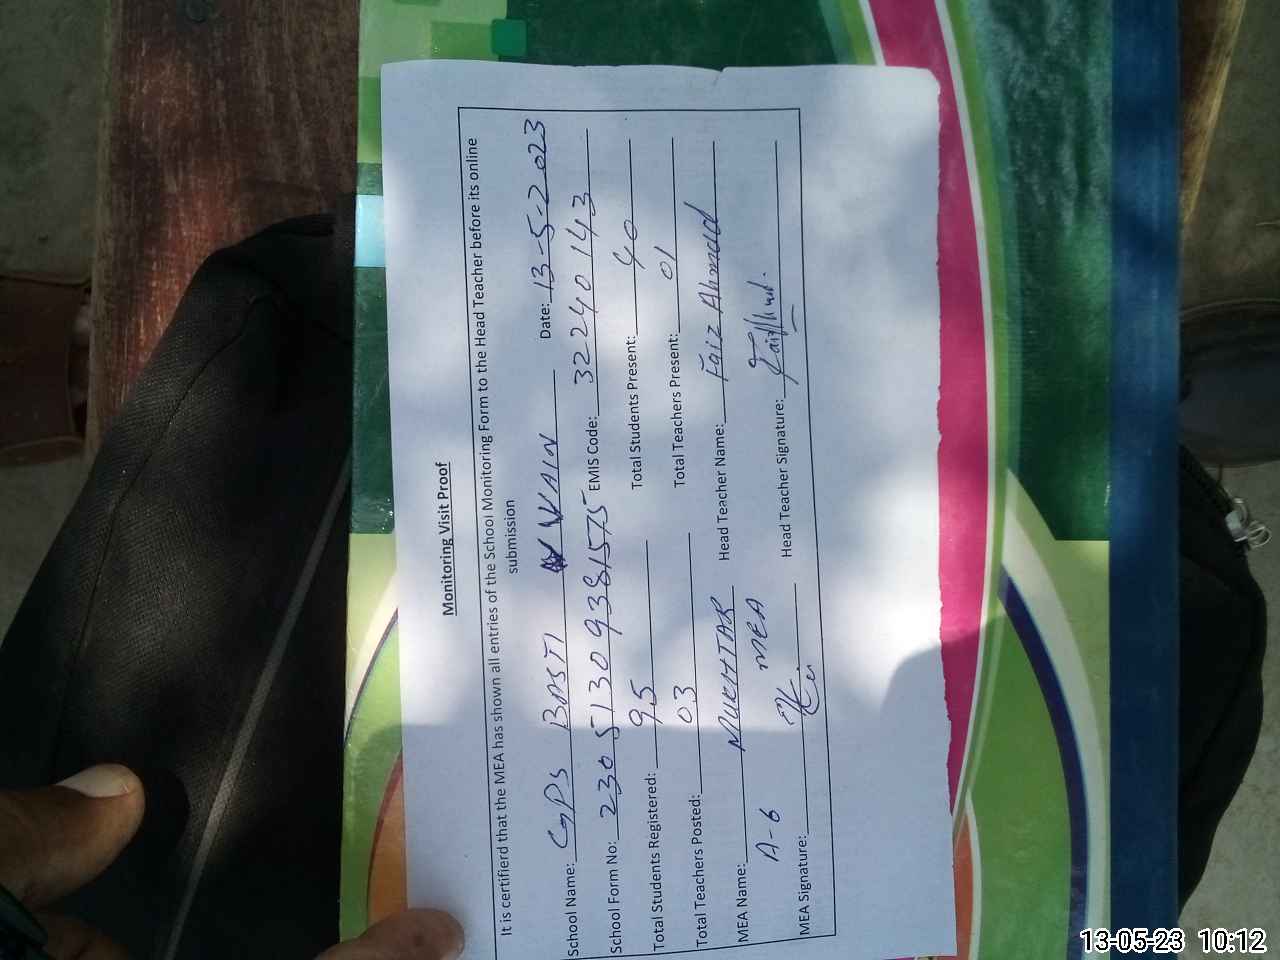 Monitoring Visit Proof
It is certifierd that the MEA has shown all entries of the School Monitoring Form to the Head Teacher before its online
submission
School Name: GPS BASTI VAIN Date: 13-5-2023
School Form No: 23051309381575 EMIS Code: 32240143
Total Students Registered: 95 Total Students Present: 40
Total Teachers Posted: 03 Total Teachers Present: 01
MEA Name: MUKHTAR Head Teacher Name: Faiz Ahmad
A-6 MEA
MEA Signature: Head Teacher Signature:
13-05-23 10:12